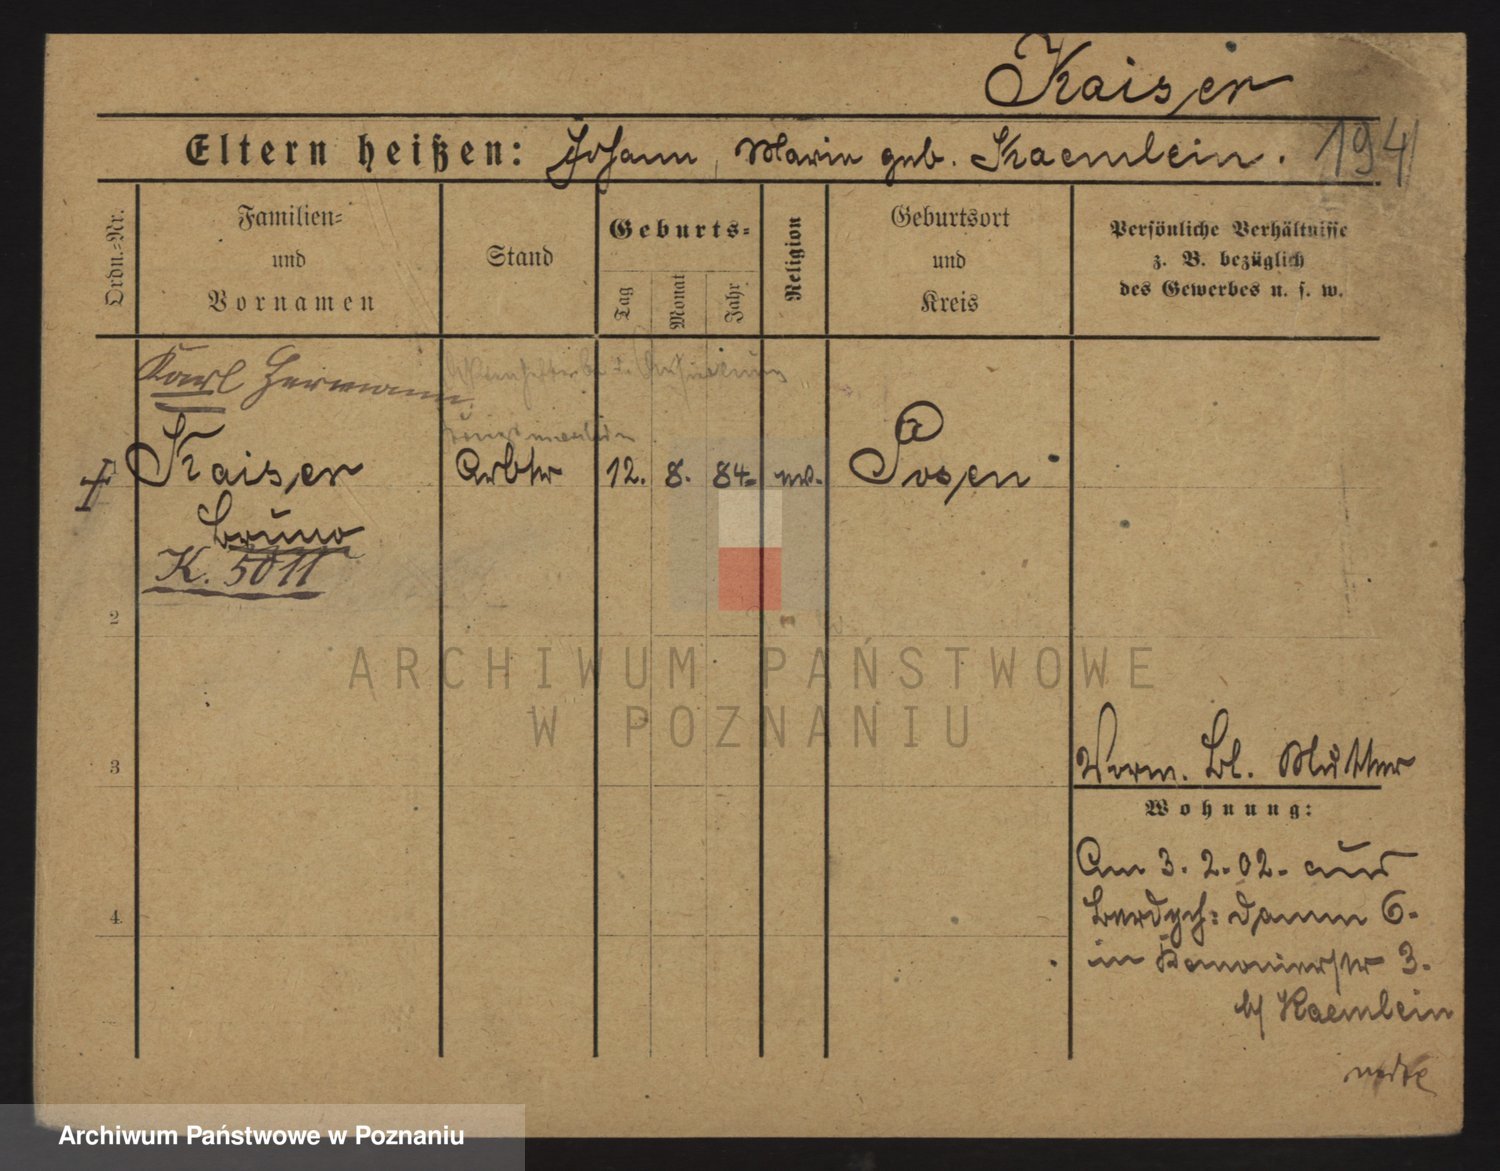 Kaiser
Eltern heißen: Johann, Marie geb. Kaemlein.
194
Ordn.-Nr.
Familien-
und
Vornamen
Stand
Geburts-
Tag
Monat
Jahr
Religion
Geburtsort
und
Kreis
Persönliche Verhältnisse
z. B. bezüglich
des Gewerbes u. s. w.
Karl Hermann
Kaiser
Arbtr
12. 8. 84.
Posen
Bruno
K. 5011
2
3
4
ARCHIWUM PAŃSTWOWE
W POZNANIU
Vorm. Bl. Mutter
Wohnung:
Am 3. 2. 02. aus
Berdych: damm 6.
in Kanonierstr 3.
b/ Kaemlein
Archiwum Państwowe w Poznaniu